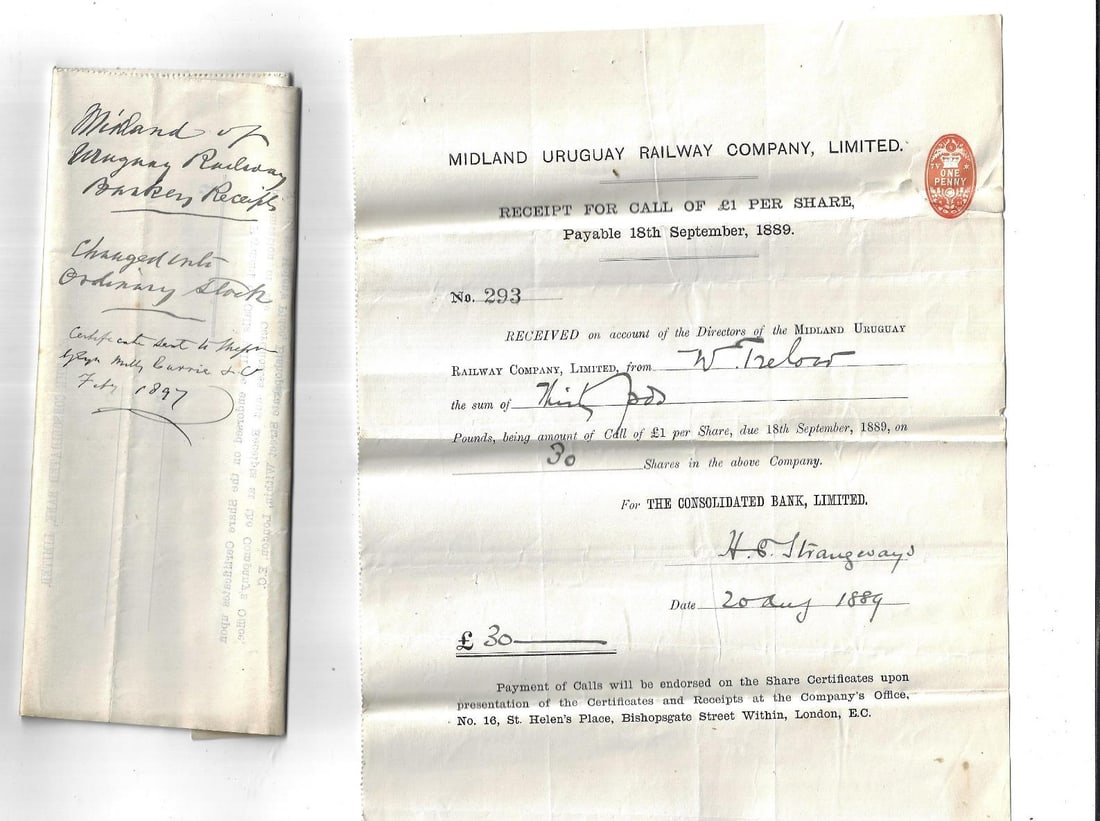 Midland of
Uruguay Railway
Bankers Receipts
Changed into
Ordinary Stock
Certificate sent to
Mills Currie & Co
Feby 1897
MIDLAND URUGUAY RAILWAY COMPANY, LIMITED.
ONE
PENNY
RECEIPT FOR CALL OF £1 PER SHARE,
Payable 18th September, 1889.
No. 293
RECEIVED on account of the Directors of the MIDLAND URUGUAY
RAILWAY COMPANY, LIMITED, from W. Trelow
the sum of Thirty pds
Pounds, being amount of Call of £1 per Share, due 18th September, 1889, on
30 Shares in the above Company.
For THE CONSOLIDATED BANK, LIMITED.
H. E. Strangways
Date 20 Aug 1889
£ 30
Payment of Calls will be endorsed on the Share Certificates upon
presentation of the Certificates and Receipts at the Company's Office,
No. 16, St. Helen's Place, Bishopsgate Street Within, London, E.C.